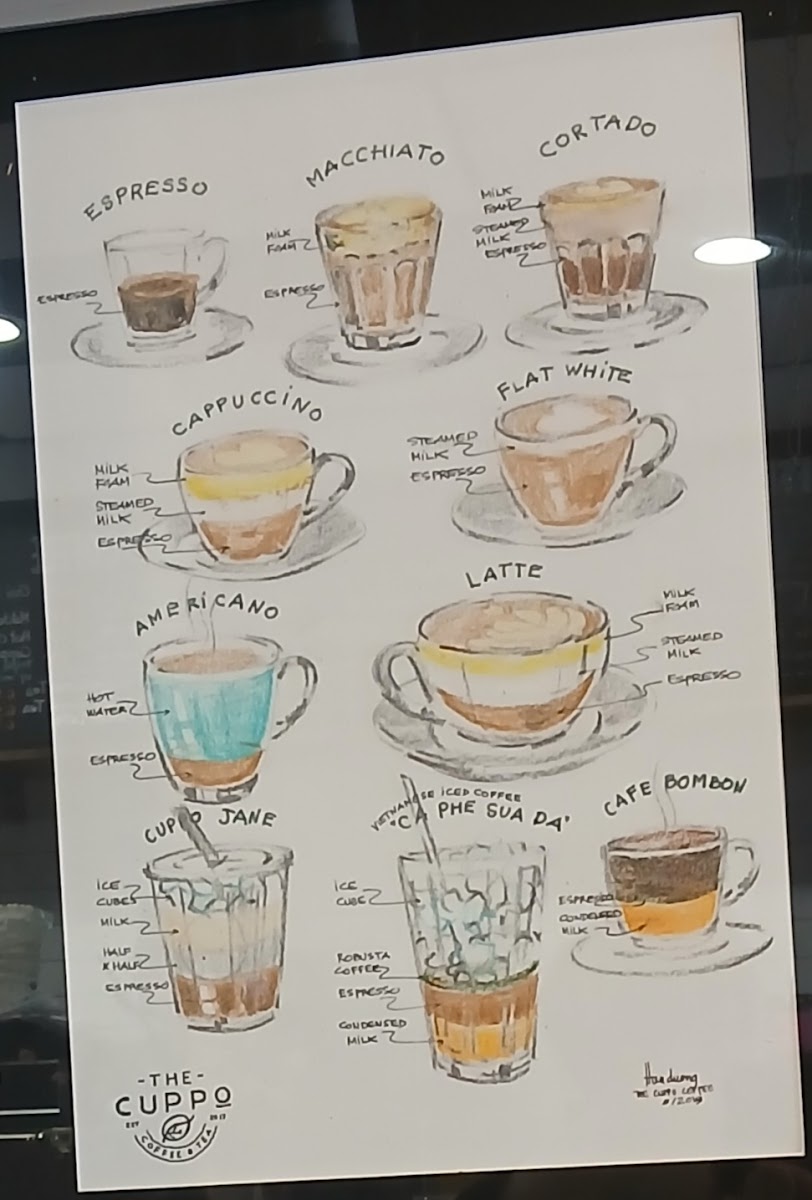 ESPRESSO
ESPRESSO
MACCHIATO
MILK
FOAM
ESPRESSO
CORTADO
MILK
FOAM
STEAMED
MILK
ESPRESSO
CAPPUCCINO
MILK
FOAM
STEAMED
MILK
ESPRESSO
FLAT WHITE
STEAMED
MILK
ESPRESSO
AMERICANO
HOT
WATER
ESPRESSO
LATTE
MILK
FOAM
STEAMED
MILK
ESPRESSO
CUPPO JANE
ICE
CUBES
MILK
HALF
& HALF
ESPRESSO
VIETNAMESE ICED COFFEE
"CA PHE SUA DA"
ICE
CUBE
ROBUSTA
COFFEE
ESPRESSO
CONDENSED
MILK
CAFE BOMBON
ESPRESSO
CONDENSED
MILK
-THE-
CUPPO
EST 2017
COFFEE & TEA
THE CUPPO COFFEE